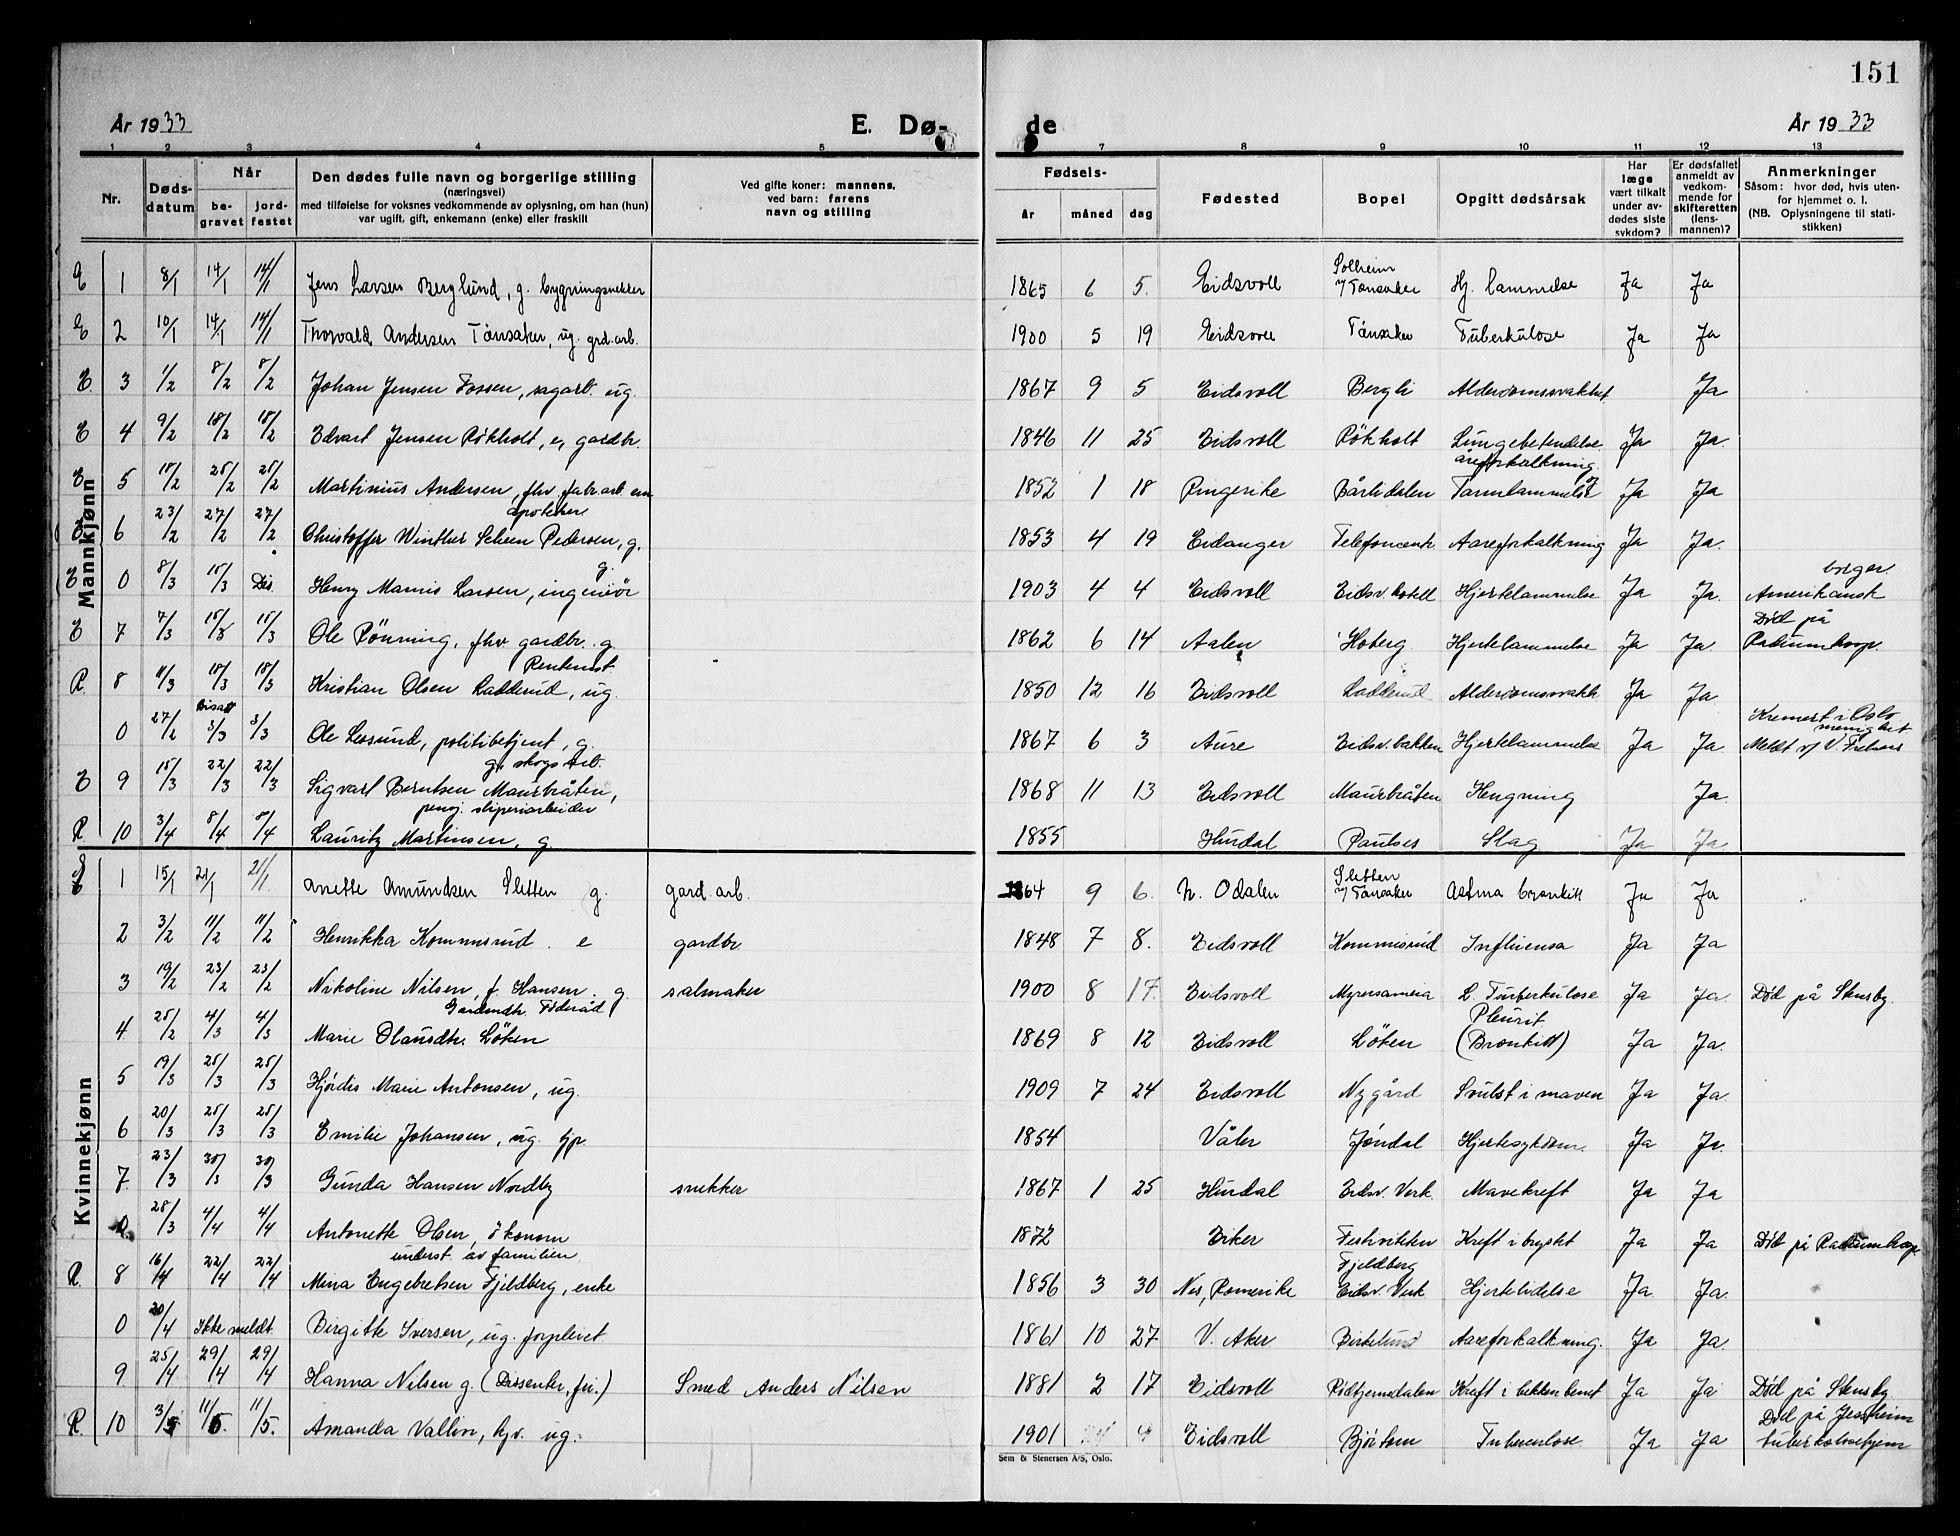 151
År 1933 E. Dø- de År 1933
1 2 3 4 5 7 8 9 10 11 12 13
Nr. Døds-datum Når be-gravet jord-festet
Den dødes fulle navn og borgerlige stilling
(næringsvei)
med tilføielse for voksnes vedkommende av oplysning, om han (hun)
var ugift, gift, enkemann (enke) eller fraskilt
Ved gifte koner: mannens,
ved barn: farens
navn og stilling
Fødsels-
år måned dag
Fødested
Bopel
Opgitt dødsårsak
Har læge vært tilkalt under av-dødes siste sykdom?
Er dødsfallet anmeldt av vedkom-mende for skifteretten (lens-mannen)?
Anmerkninger
Såsom: hvor død, hvis uten-
for hjemmet o. l.
(NB. Oplysningene til stati-
stikken)
Mannkjønn
E 1 8/1 14/1 14/1 Jens Larsen Berglund, g. bygningsnekker 1865 6 5. Eidsvoll Solheim v/Tønsaker Hj. lammelse Ja Ja
E 2 10/1 14/1 14/1 Thorvald Andersen Tønsaker, ug. grd.arb. 1900 5 19 Eidsvoll Tønsaker Tuberkulose Ja Ja
E. 3 1/2 8/2 8/2 Johan Jensen Fossen, sagarb. ug. 1867 9 5 Eidsvoll Bergli Alderdomssvakhet Ja
E 4 9/2 18/2 18/2 Edvart Jensen Røkholt, e, gardbr. 1846 11 25 Eidsvoll Røkholt Lungebetendelse Ja Ja.
E 5 17/2 25/2 25/2 Martinius Andersen, fhv. fabr.arb. em 1852 1 18 Ringerike Bårlidalen åreforkalkning og Tarmlammelse Ja Ja
E 6 23/2 27/2 27/2 Christoffer Winther Scheen Pedersen, g. apoteker 1853 4 19 Eidanger Telefoncentr. Aareforkalkning Ja Ja.
E 0 8/3 15/3 Dis. Henry Mannis Larsen, ingeniør g. 1903 4 4 Eidsvoll Eidsv. hotell Hjertelammelse Ja Ja. Amerikansk borger.
E 7 7/3 15/3 15/3 Ole Rønning, fhv. gardbr. g. 1862 6 14 Aalen Hoberg Hjertelammelse Ja Ja. Død på Radiumhosp.
R. 8 11/3 18/3 18/3 Kristian Olsen Ladderud, ug. Rentenist 1850 12 16 Eidsvoll Ladderud Alderdomssvakh. Ja Ja.
0 27/2 Bisatt 3/3 3/3 Ole Lessund, politibetjent, g. 1867 6 3 Aure Eidsv. bakken Hjertelammelse Ja Ja. Kremert i Oslo Meldt v/ V. Frelsers menighet
E 9 15/3 22/3 22/3 Sigvart Berntsen Maurbråten, g. skogsarb. 1868 11 13 Eidsvoll Maurbråten Hengning Ja.
R. 10 3/4 8/4 8/4 Lauritz Martinsen, g pensj. sliperiarbeider 1855 Hurdal Paulses Slag Ja Ja.
Kvinnekjønn
E 1 15/1 21/1 21/1 Anette Amundsen Sletten g. gard.arb. 1864 9 6. N. Odalen Sletten v/Tønsaker Astma bronkitt Ja Ja
2 3/2 11/2 11/2 Henrikka Kommisrud. e gardbr. 1848 7 8. Eidsvoll Kommisrud Influensa Ja Ja
3 19/2 23/2 23/2 Nikoline Nilsen, f. Hansen. g. salmaker 1900 8 17. Eidsvoll Myrersameia L. Tuberkulose Ja Ja. Død på Stensby.
4 25/2 4/3 4/3 Marie Olausdtr. Løken 1869 8 12 Eidsvoll Løken Pleurit (Bronkitt) Ja Ja.
5 19/3 25/3 25/3 Hjørdis Marie Antonsen, ug. 1909 7 24 Eidsvoll Nygård Svulst i maven Ja Ja.
6 20/3 25/3 25/3 Emilie Johansen, ug. hjp. 1854 Våler Jøndal Hjertesykdom. Ja Ja.
7. 23/3 30/3 30/3 Gunda Hansen Nordby snekker 1867 1 25 Hurdal Eidsv. Verk Mavekreft Ja Ja
0. 28/3 4/4 4/4 Antonette Olsen, økonom 1872 Eiker Festiviteten Kreft i brystet Ja Ja Død på Radiumhosp
R. 8 16/4 22/4 22/4 Mina Engebretsen Fjeldberg, enke underst. av familien 1856 3 30 Nes, Romerike Fjeldberg Eidsv. Verk Hjertelidelse Ja. Ja.
0 20/4 Ikke meldt. Birgitte Iversen, ug. forpleiet. 1861 10 27 V. Aker Birkelund Aareforkalkning. Ja Ja.
9 25/4 29/4 29/4 Hanna Nilsen g. (Dissenter, fri.) Smed Anders Nilsen 1881 2 17 Eidsvoll Rødtjerndalen Kreft i bekkenbenet Ja Ja Død på Stensby.
R. 10 3/5 11/5. 11/5. Amanda Vallin, hjv. ug. 1901 4 Eidsvoll Bjørtom Tuberculose. Ja Ja Død på Jessheim tuberkulosehjem
Sem & Stenersen A/S, Oslo.